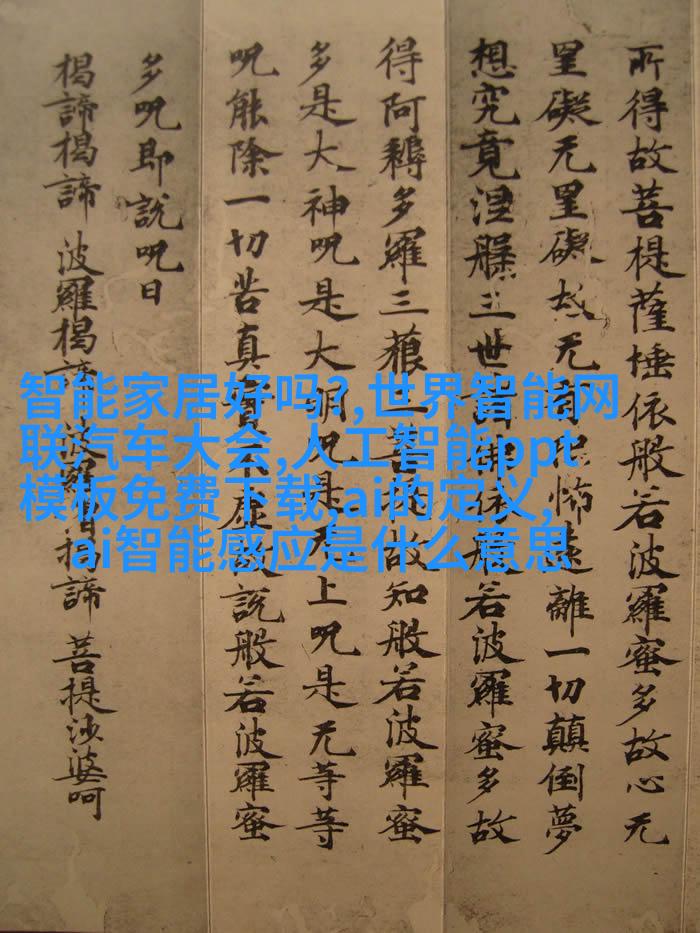 所得故菩提薩埵依般若波羅蜜多故心无
罣礙无罣礙故无有恐怖遠離一切顛倒夢
想究竟涅槃三世諸佛依般若波羅蜜多故
得阿耨多羅三藐三菩提故知般若波羅蜜
多是大神呪是大明呪是无上呪是无等等
呪能除一切苦真實不虛故說般若波羅蜜
多呪即說呪曰
揭諦揭諦 波羅揭諦 波羅僧揭諦 菩提沙婆呵
智能家居好吗?,世界智能网
联汽车大会,人工智能ppt
模板免费下载,ai的定义,
ai智能感应是什么意思